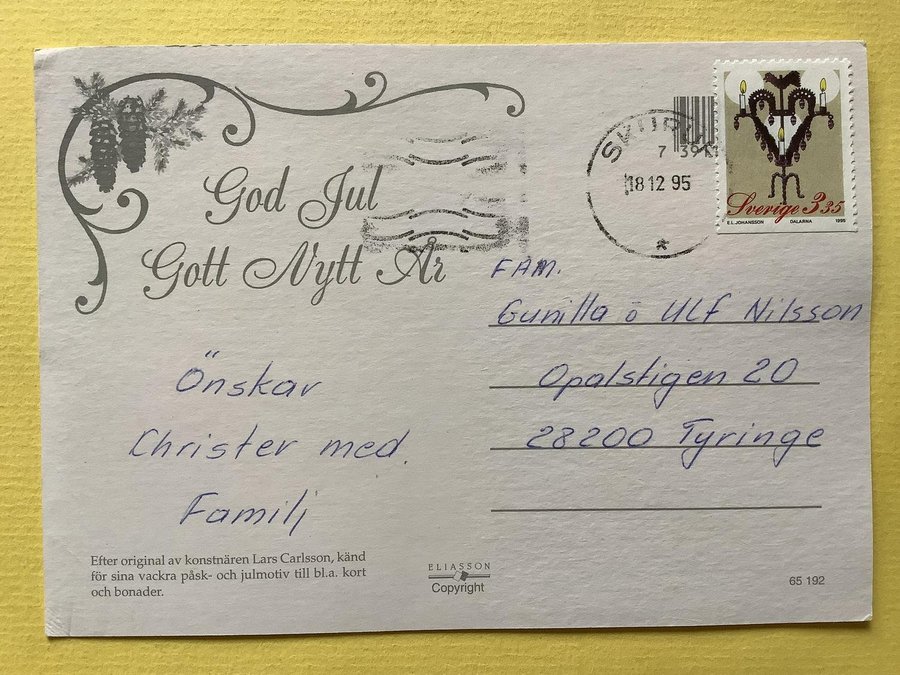 God Jul
Gott Nytt År
Önskar
Christer med
Familj
Efter original av konstnären Lars Carlsson, känd
för sina vackra påsk- och julmotiv till bl.a. kort
och bonader.
ELIASSON
Copyright
18 12 95
Sverige 3 35
E.L. JOHANSSON DALARNA 1995
FAM.
Gunilla o Ulf Nilsson
Opalstigen 20
28200 Tyringe
65 192